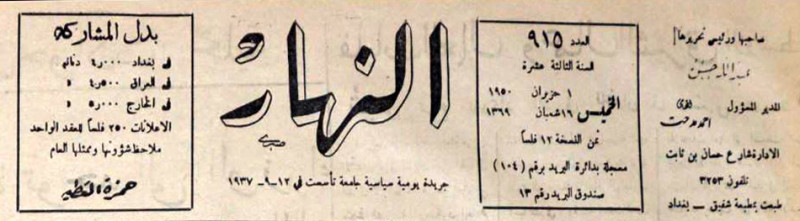 صاحبها ورئيس تحريرها
عبد الله حسن
المدير المسؤول
احمد مدحت
الادارة شارع حسان بن ثابت
تلفون ٣٢٥٣
طبعت بمطبعة شفيق – بغداد
العدد ٩١٥
السنة الثالثة عشرة
الخميس
١ حزيران ١٩٥٠
١٦ شعبان ١٣٦٩
ثمن النسخة ١٢ فلساً
مسجلة بدائرة البريد برقم (١٠٤)
صندوق البريد رقم ١٣
النهار
صبري
جريدة يومية سياسية جامعة تأسست في ١٢–٩–١٩٣٧
بدل المشاركة
في بغداد ٤٫٠٠٠ دنانير
في العراق ٤٫٥٠٠ »
في الخارج ٥٫٠٠٠ »
الاعلانات ٢٥٠ فلساً للعقد الواحد
ملاحظ شؤونها وممثلها العام
حمزة